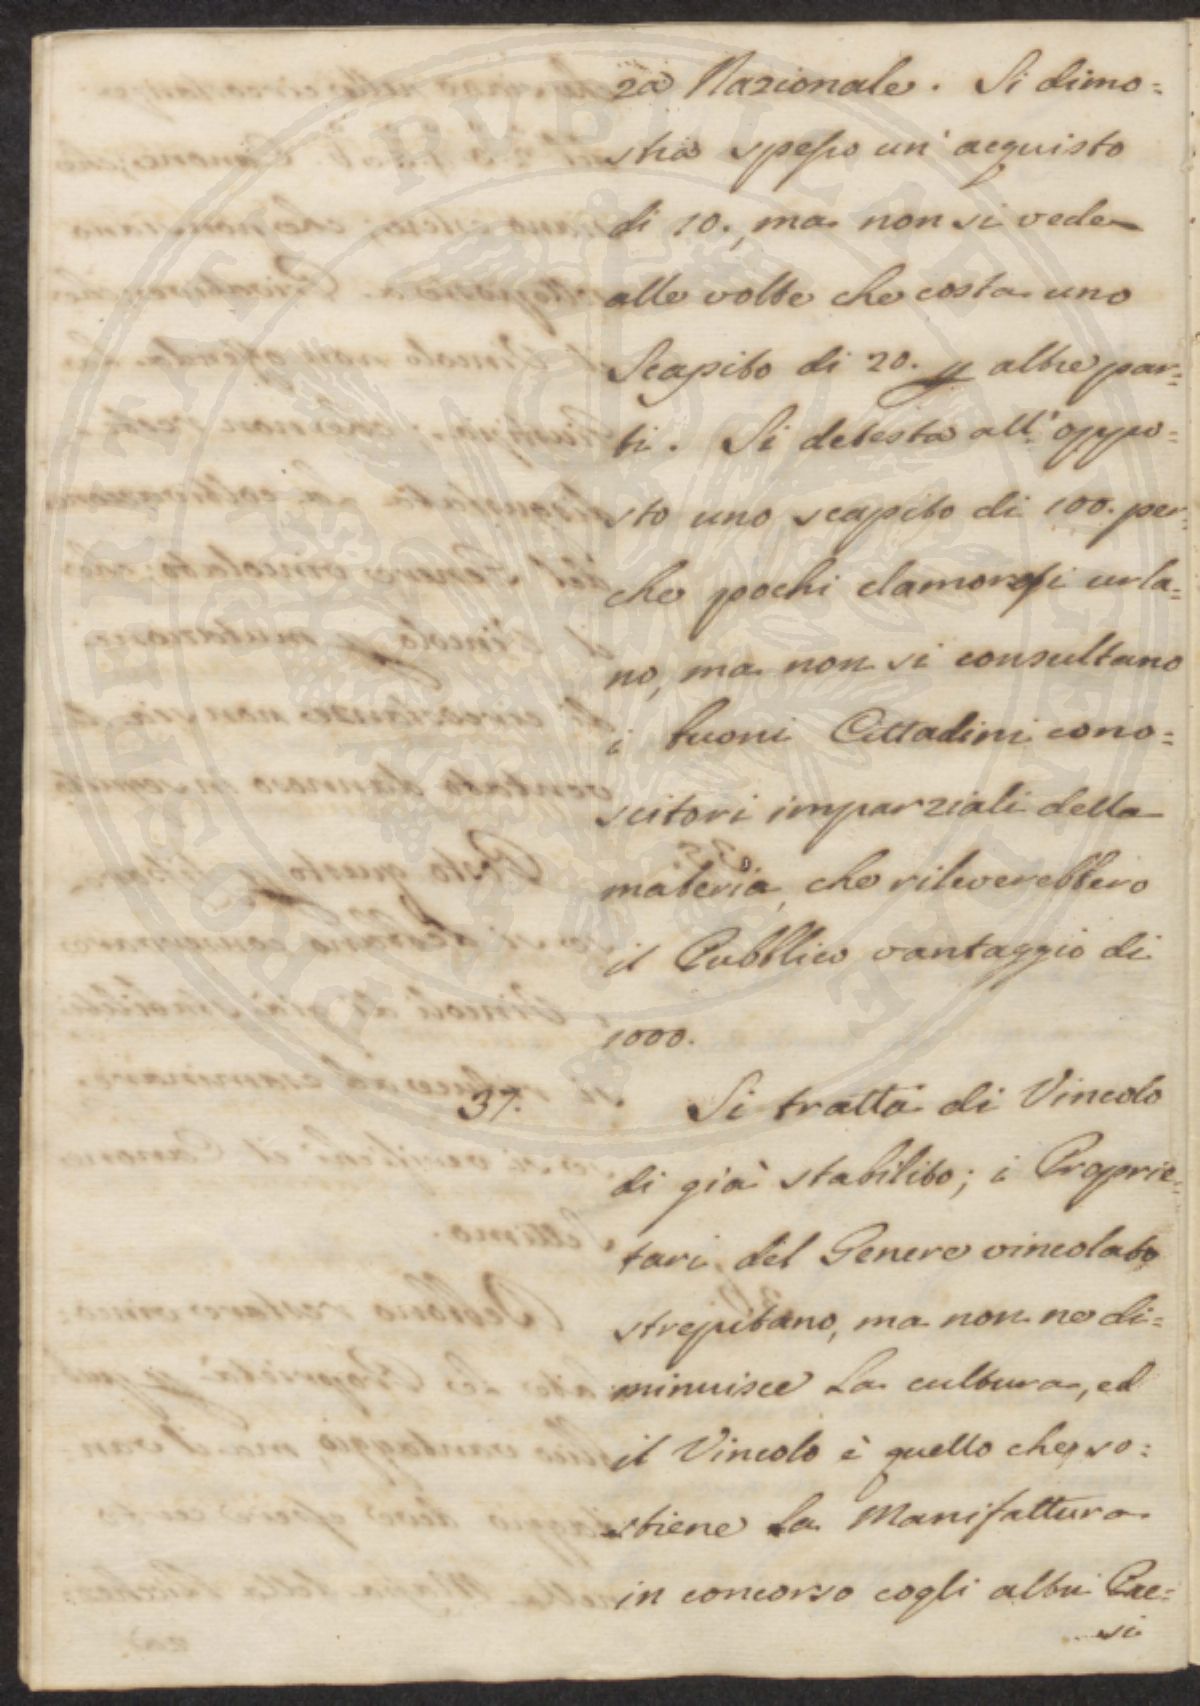 za Nazionale. Si dimo=
stra spesso un' acquisto
di 10., ma non si vede
alle volte che costa uno
Scapito di 20. p altre par=
ti. Si detesta all' oppo=
sto uno scapito di 100. per=
che pochi clamorosi urla=
no, ma non si consultano
i buoni Cittadini cono=
scitori imparziali della
materia, che rileverebbero
il Pubblico vantaggio di
1000.
37. Si tratta di Vincolo
di già stabilito; i Proprie=
tari del Genere vincolato
strepitano, ma non ne di=
minuisce la cultura, ed
il Vincolo è quello che so=
stiene la Manifattura
in concorso cogli altri Pae=
si